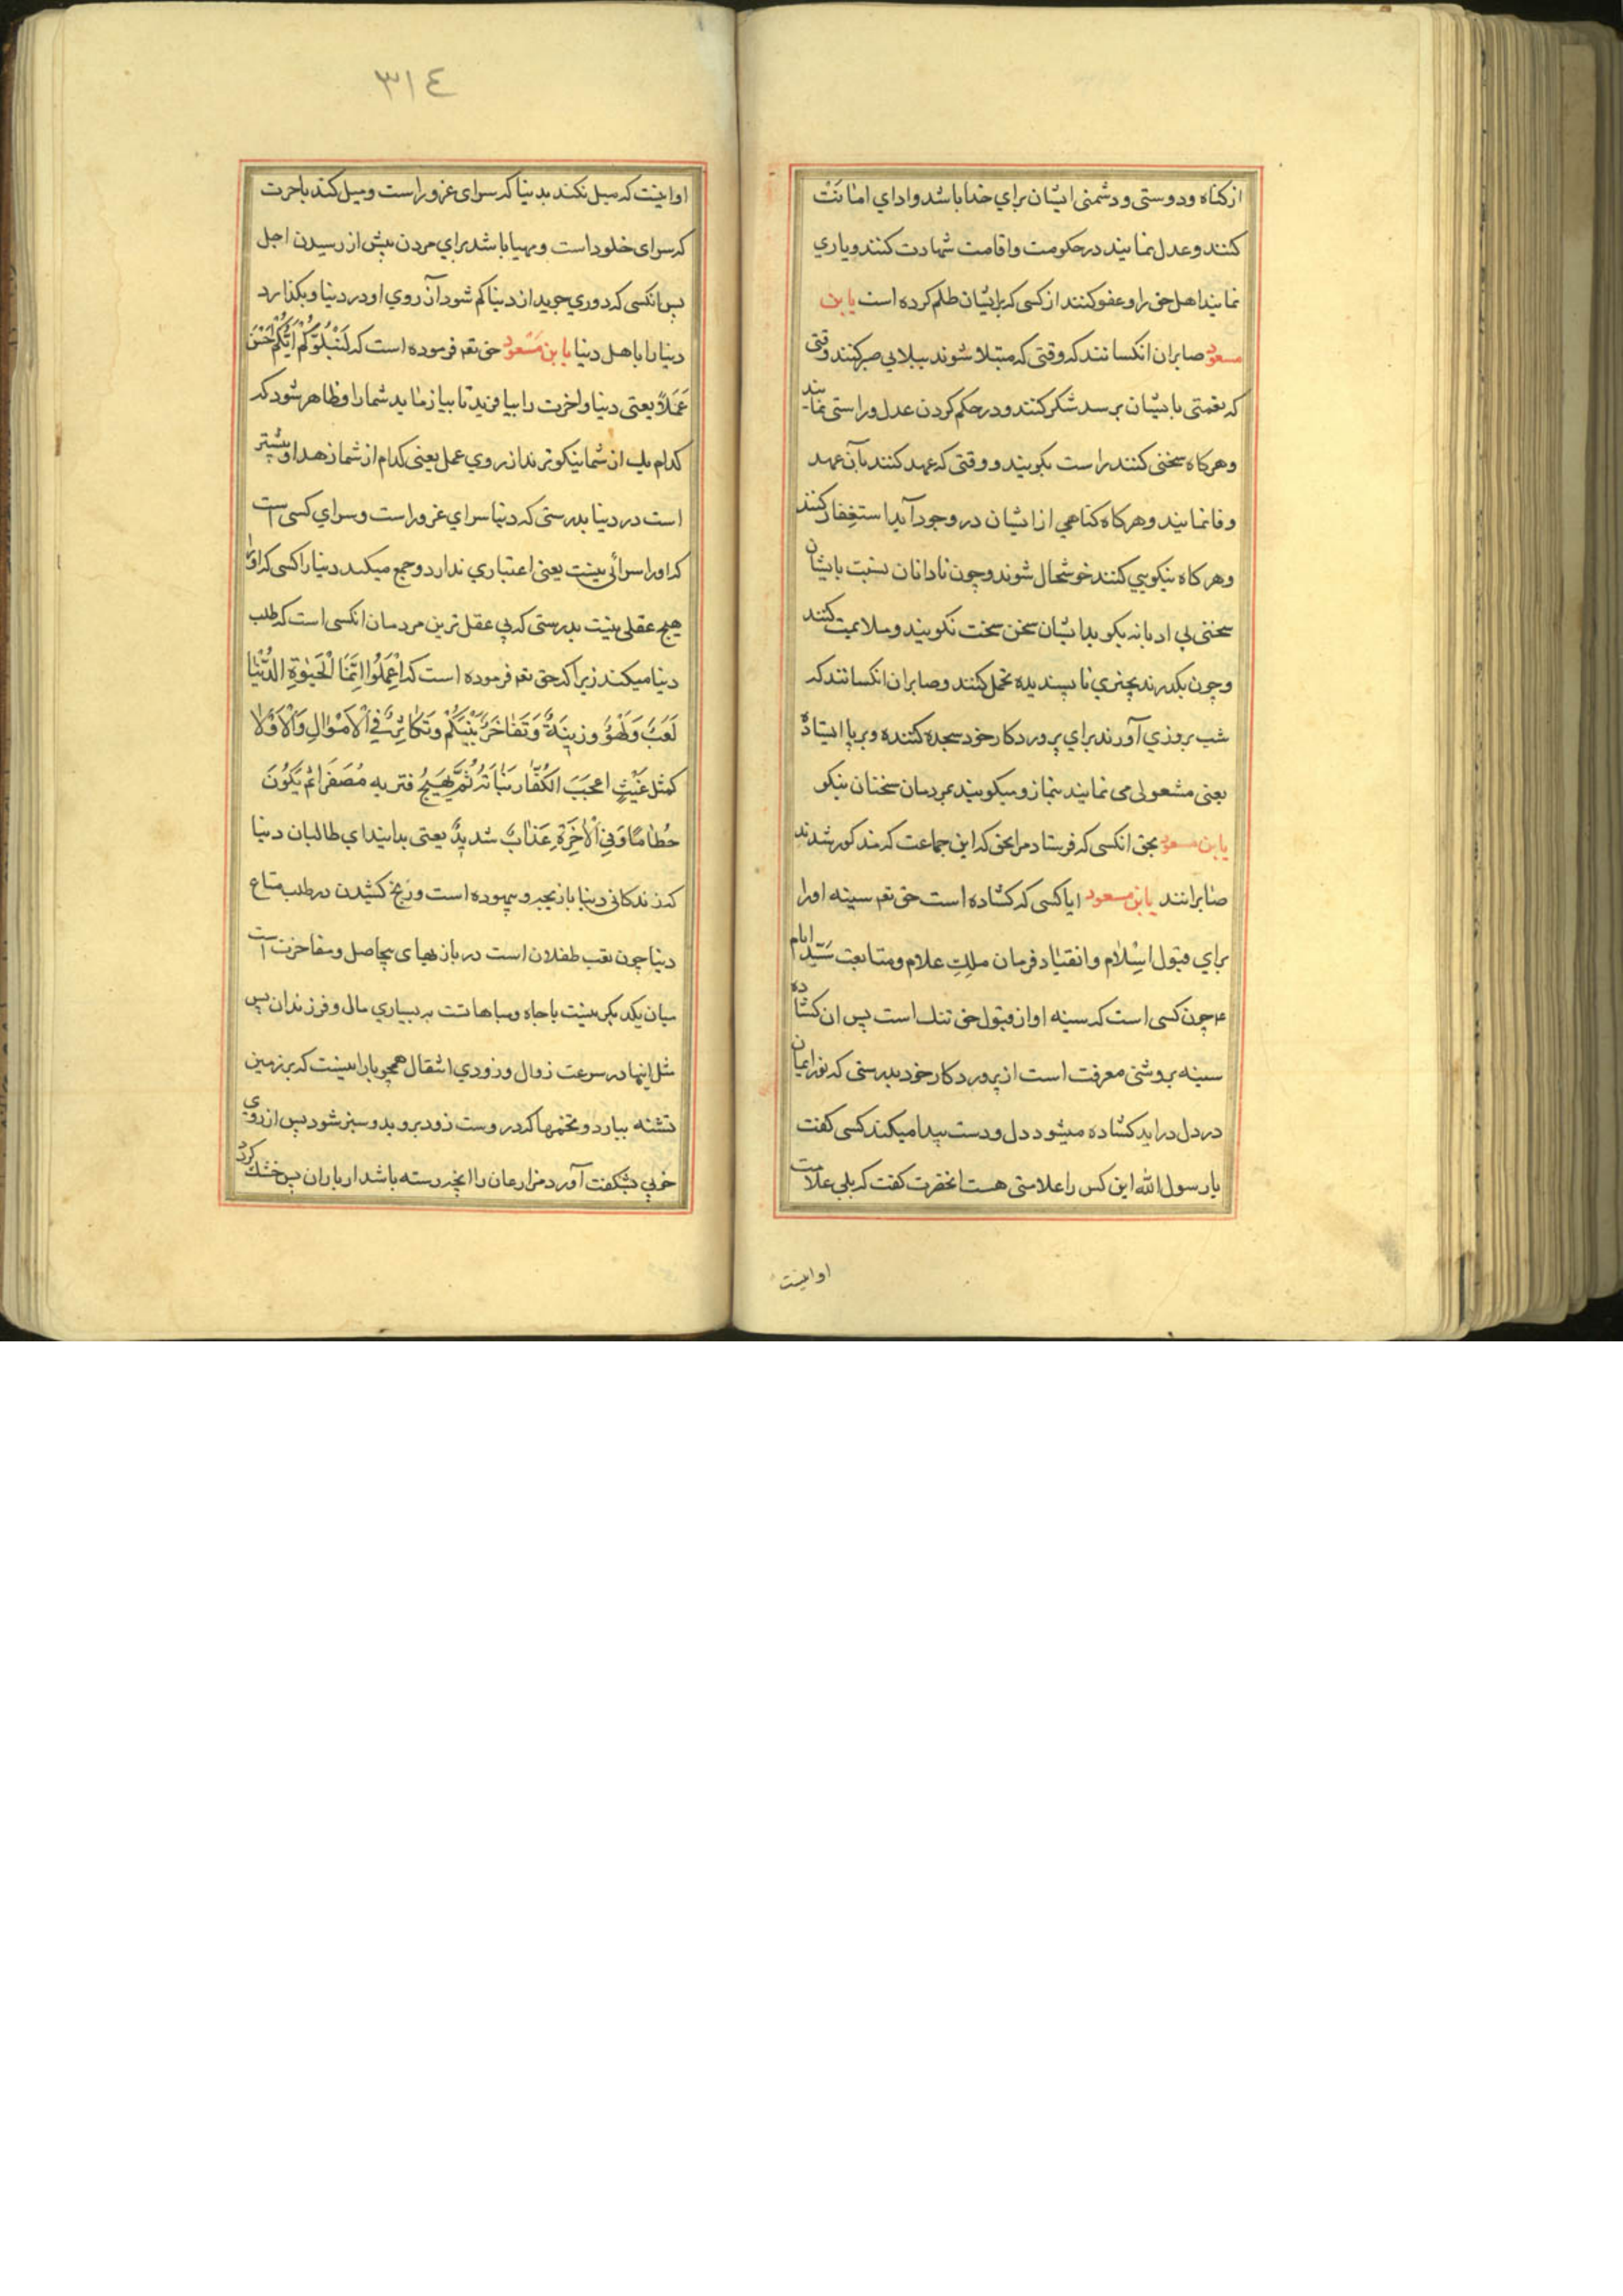 از کناه ودوستی ودشمنی ایشان برای خدا باشد واداي امانت
کنند وعدل نمایند در حکومت واقامت شهادت کنند ویاري
نمایند اهل حق را وعفو کنند از کسی که برایشان ظلم کرده است یابن
مسعود صابران انکسانند که وقتی که مبتلا شوند ببلایی صبر کنند وقتی
که نعمتی بایشان برسد شکر کنند ودر حکم کردن عدل وراستی نمایند
وهر کاه سخنی کنند راست بکویند ووقتی که عهد کنند بآن عهد
وفا نمایند وهر کاه کناهي از ایشان در وجود آید استغفار کنند
وهر کاه نیکویی کنند خوشحال شوند وچون نادانان نسبت بایشان
سخنی بي ادبانه بکوید ایشان سخن سخت نکویند وملایمت کنند
وچون بکذرند بچیزي ناپسندیده تحمل کنند وصابران انکسانند که
شب بروزي آورند براي پروردکار خود سجده کننده وبرپا ایستاده
یعنی مشغولی می نمایند بنماز ومیکویند بمردمان سخنان نیکو
یابن مسعود بحق انکسی که فرستاد مرا بحق که این جماعت که مذکور شدند
صابرانند یابن مسعود ایا کسی که کشاده است حق تعم سینه اورا
براي قبول اسلام وانقیاد فرمان ملك علام ومتابعت سید انام
م چون کسی است که سینه او از قبول حق تنك است پس ان کشاده
سینه بروشنی معرفت است از پروردکار خود بدرستی که نور ایمان
در دل دراید کشاده میشود دل ودست پیدا میکند کسی کفت
یارسول الله این کس را علامتی هست انحضرت کفت که بلی علامت
اواینست
٣١٤
اواینست که میل نکند بدنیا که سرای غرور است ومیل کند باخرت
که سرای خلود است ومهیا باشد براي مردن پیش از رسیدن اجل
پس انکسی که دوري جوید از دنیا کم شود آرزوي او در دنیا وبکذارد
دنیا را باهل دنیا یابن مسعود حق تعم فرموده است که لنبلوکم ایکم احسن
عملا یعنی دنیا واخرت را بیافرید تا بیازماید شما را وظاهر شود که
کدام یك از شما نیکوترند از روي عمل یعنی کدام از شما زهد او بیشتر
است در دنیا بدرستی که دنیا سراي غرور است وسراي کسی است
که اورا سرائی نیست یعنی اعتباري ندارد وجمع میکند دنیا را کسی که اورا
هیچ عقلی نیست بدرستی که بي عقل ترین مردمان انکسی است که طلب
دنیا میکند زیرا که حق تعم فرموده است که اعملوا انما الحیوة الدنیا
لعب ولهو وزینة وتفاخر بینکم وتکاثر في الاموال والاولا
کمثل غیث اعجب الکفار نباته ثم یهیج فتریه مصفرا ثم یکون
حطاما وفي الاخرة عذاب شدید یعنی بدانید اي طالبان دنیا
که زندکانی دنیا بازیچه وبیهوده است ورنج کشیدن در طلب متاع
دنیا چون تعب طفلان است در بازیهای بیحاصل ومفاخرت است
میان یکدیکر بنسبت باجاه ومباهاتست به بسیاري مال وفرزندان پس
مثل اینها در سرعت زوال وزودي انتقال همچو بارانیست که بر زمین
تشنه ببارد وتخمها که دروست زود بروید وسبز شود پس از روي
خوبي بشکفت آورد مزارعان را انچه رسته باشد از باران پس خشك کردد